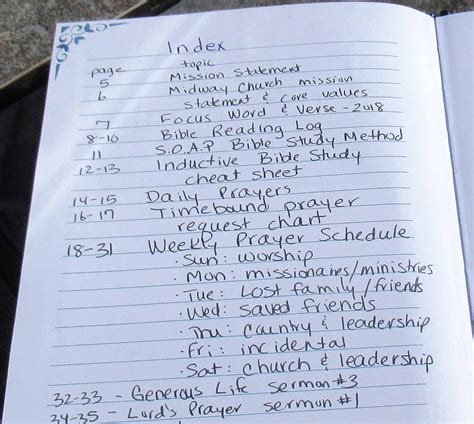 Index
page topic
5 Mission Statement
6 Midway Church mission
statement & core values
7 Focus Word & Verse - 2018
8-10 Bible Reading Log
11 S.O.A.P Bible Study Method
12-13 Inductive Bible Study
cheat sheet
14-15 Daily Prayers
16-17 Timebound prayer
request chart
18-31 Weekly Prayer Schedule
· Sun: worship
· Mon: missionaries/ministries
· Tue: Lost family/friends
· Wed: saved friends
· Thu: Country & leadership
· Fri: incidental
· Sat: church & leadership
32-33 - Generous Life sermon #3
34-35 - Lord's Prayer sermon #1